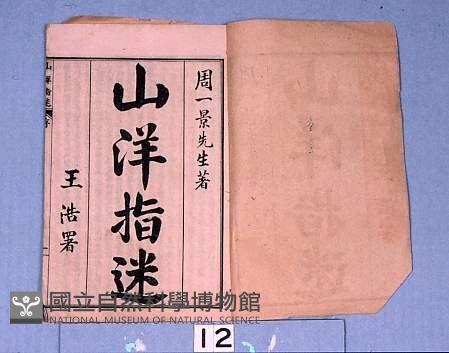 周一景先生著
山洋指迷
王浩署
山洋指迷
國立自然科學博物館
NATIONAL MUSEUM OF NATURAL SCIENCE
12